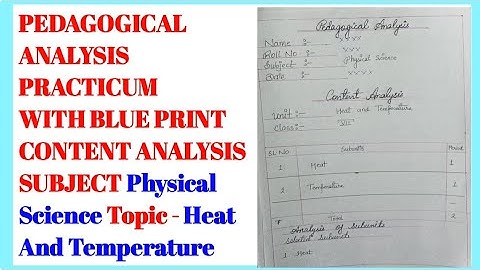 PEDAGOGICAL
ANALYSIS
PRACTICUM
WITH BLUE PRINT
CONTENT ANALYSIS
SUBJECT Physical
Science Topic - Heat
And Temperature
Pedagogical Analysis
Name :- xxx
Roll No :- xxx
Subject :- Physical Science
Date :- xxxx
Content Analysis
Unit :- Heat and Temperature
Class:- VII
SL No Subunits Period
1 Heat 1
2 Temperature 1
Total 2
Analysis of Subunits
Selected Subunits
1 Heat